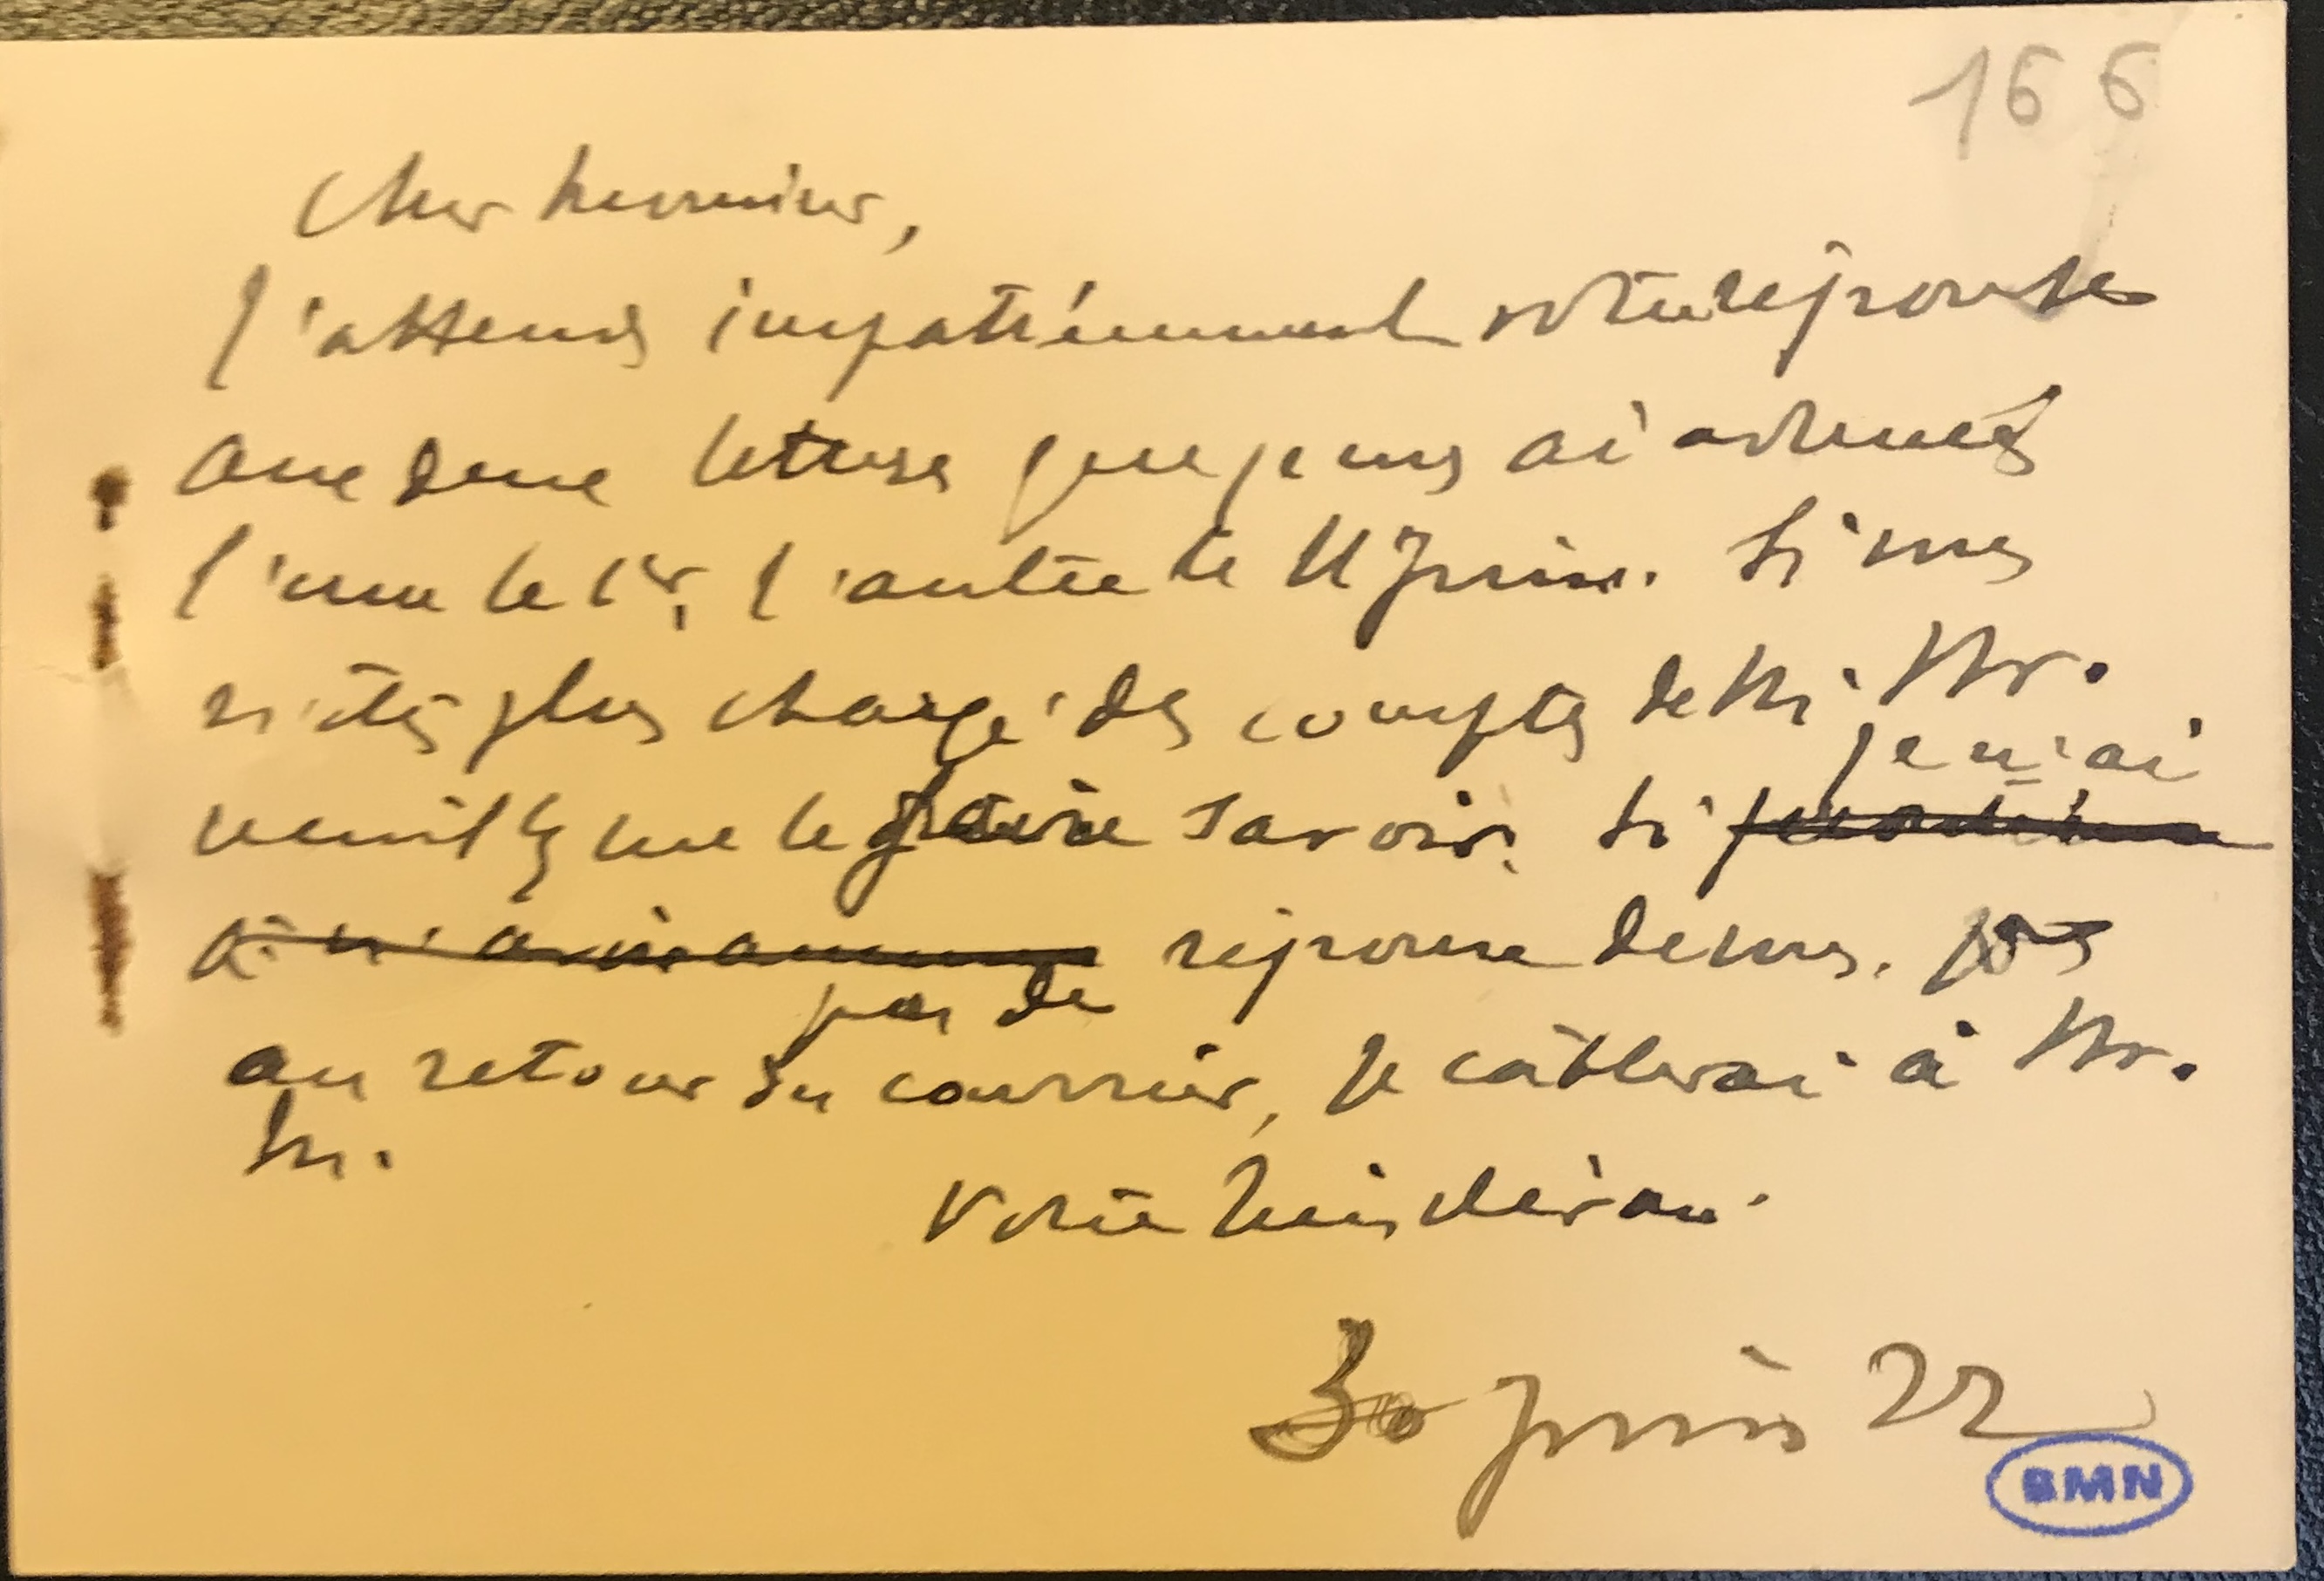 166
Cher Monsieur,
J'attends impatiemment votre réponse
aux deux lettres que je vous ai adressées
l'une le 1er, l'autre le 11 Juin. Si vous
n'êtes plus chargé des comptes de M. Mr.
veuillez me le faire savoir. Si
je n'ai
réponse de vous. pas
pas de
au retour du courrier, je câblerai à Mr.
M.
Votre bien dévoué.
30 Juin 22
BMN